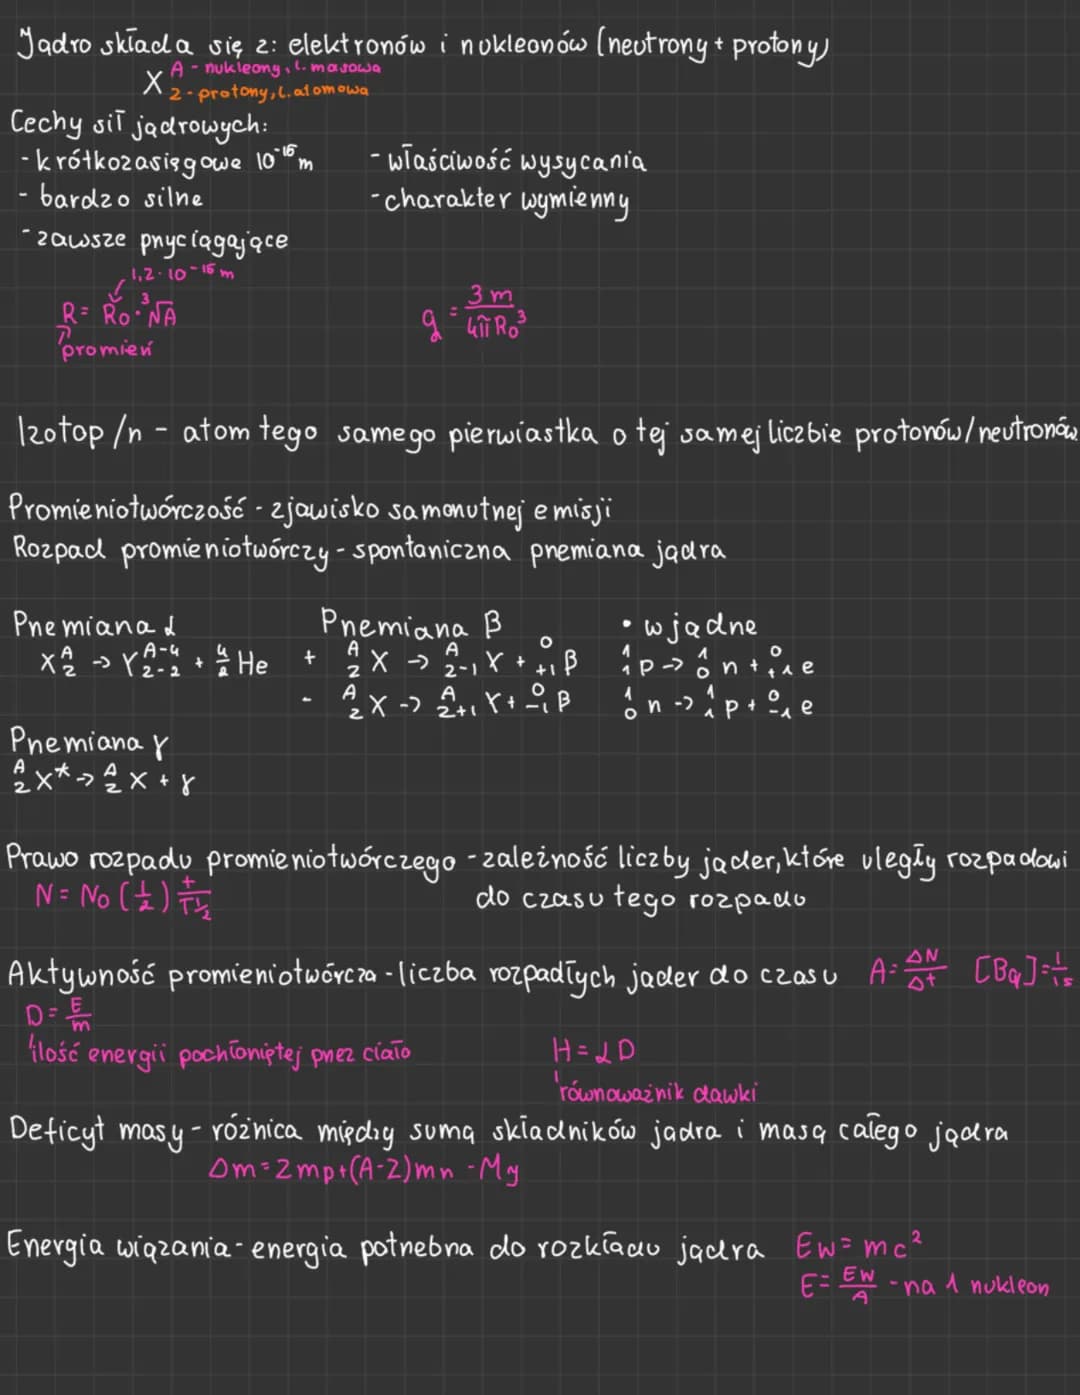 Jądro składa się z: elektronów i nukleonów (neutrony + protony)
X A - nukleony, l. masowa
Z - protony, l. atomowa
Cechy sił jądrowych:
- krótkozasięgowe 10⁻¹⁵ m - właściwość wysycania
- bardzo silne - charakter wymienny
- zawsze przyciągające
1,2 · 10⁻¹⁵ m
R = R₀ · ³√A g = 3m / 4πR₀³
promień
Izotop /n - atom tego samego pierwiastka o tej samej liczbie protonów/neutronów
Promieniotwórczość - zjawisko samorzutnej emisji
Rozpad promieniotwórczy - spontaniczna przemiana jądra
Przemiana α Przemiana β • w jądrze
X^A_Z → Y^A-4_Z-2 + ^4_2 He + ^A_Z X → ^A_Z-1 Y + ^0_+1 β ^1_1 p → ^1_0 n + ^0_+1 e
- ^A_Z X → ^A_Z+1 Y + ^0_-1 β ^1_0 n → ^1_1 p + ^0_-1 e
Przemiana γ
^A_Z X* → ^A_Z X + γ
Prawo rozpadu promieniotwórczego - zależność liczby jąder, które uległy rozpadowi
N = N₀ (1/2)^t/T½ do czasu tego rozpadu
Aktywność promieniotwórcza - liczba rozpadłych jąder do czasu A = ΔN/Δt [Bq] = 1/1s
D = E/m
ilość energii pochłoniętej przez ciało H = αD
równoważnik dawki
Deficyt masy - różnica między sumą składników jądra i masą całego jądra
Δm = Zmp + (A-Z)mn - Mj
Energia wiązania - energia potrzebna do rozkładu jądra Ew = mc²
E = Ew/A - na 1 nukleon